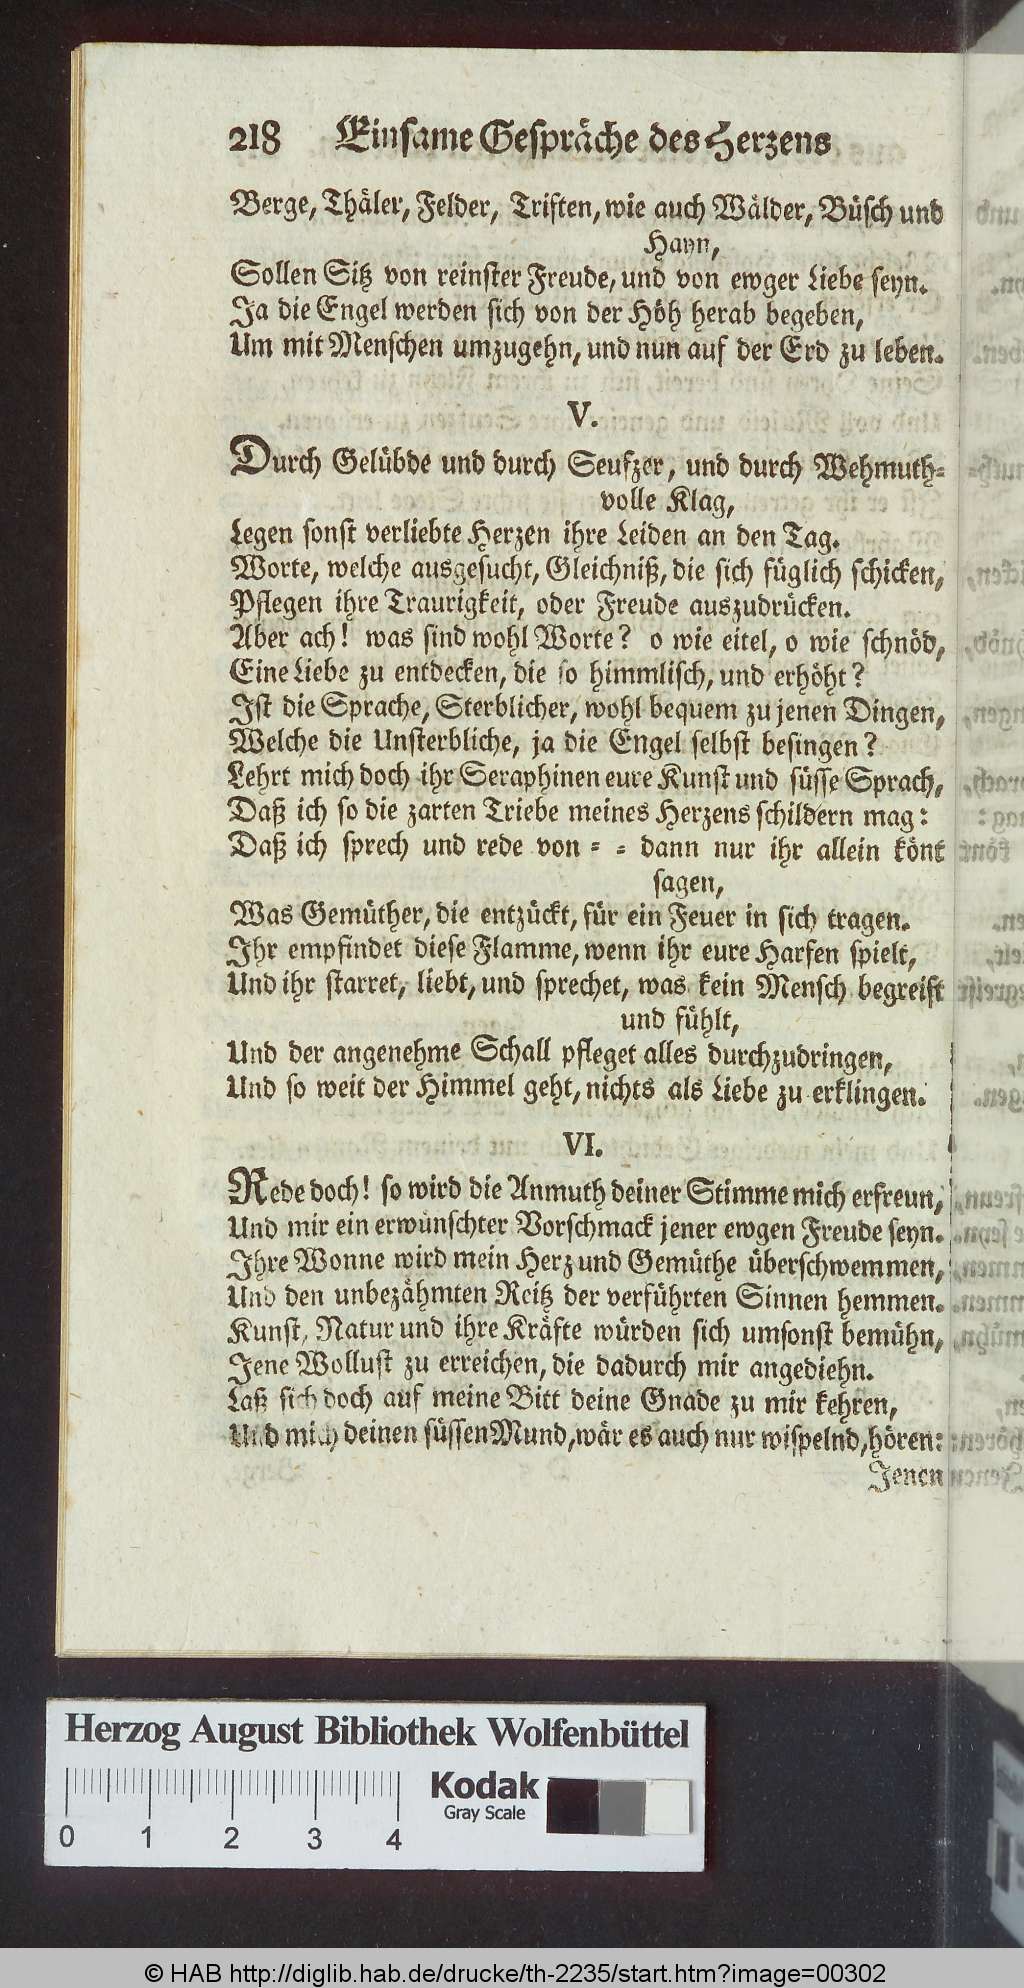 218 Einsame Gespräche des Herzens
Berge, Thäler, Felder, Triften, wie auch Wälder, Büsch und
Hayn,
Sollen Sitz von reinster Freude, und von ewger Liebe seyn.
Ja die Engel werden sich von der Höh herab begeben,
Um mit Menschen umzugehn, und nun auf der Erd zu leben.
V.
Durch Gelübde und durch Seufzer, und durch Wehmuth-
volle Klag,
Legen sonst verliebte Herzen ihre Leiden an den Tag.
Worte, welche ausgesucht, Gleichniß, die sich füglich schicken,
Pflegen ihre Traurigkeit, oder Freude auszudrücken.
Aber ach! was sind wohl Worte? o wie eitel, o wie schnöd,
Eine Liebe zu entdecken, die so himmlisch, und erhöht?
Ist die Sprache, Sterblicher, wohl bequem zu jenen Dingen,
Welche die Unsterbliche, ja die Engel selbst besingen?
Lehrt mich doch ihr Seraphinen eure Kunst und süsse Sprach,
Daß ich so die zarten Triebe meines Herzens schildern mag:
Daß ich sprech und rede von - - dann nur ihr allein könt
sagen,
Was Gemüther, die entzückt, für ein Feuer in sich tragen.
Ihr empfindet diese Flamme, wenn ihr eure Harfen spielt,
Und ihr starret, liebt, und sprechet, was kein Mensch begreift
und fühlt,
Und der angenehme Schall pfleget alles durchzudringen,
Und so weit der Himmel geht, nichts als Liebe zu erklingen.
VI.
Rede doch! so wird die Anmuth deiner Stimme mich erfreun,
Und mir ein erwünschter Vorschmack jener ewgen Freude seyn.
Ihre Wonne wird mein Herz und Gemüthe überschwemmen,
Und den unbezähmten Reitz der verführten Sinnen hemmen.
Kunst, Natur und ihre Kräfte würden sich umsonst bemühn,
Jene Wollust zu erreichen, die dadurch mir angediehn.
Laß sich doch auf meine Bitt deine Gnade zu mir kehren,
Und mich deinen süssen Mund, wär es auch nur wispelnd, hören:
Jenen
Herzog August Bibliothek Wolfenbüttel
Kodak
Gray Scale
0 1 2 3 4
© HAB http://diglib.hab.de/drucke/th-2235/start.htm?image=00302